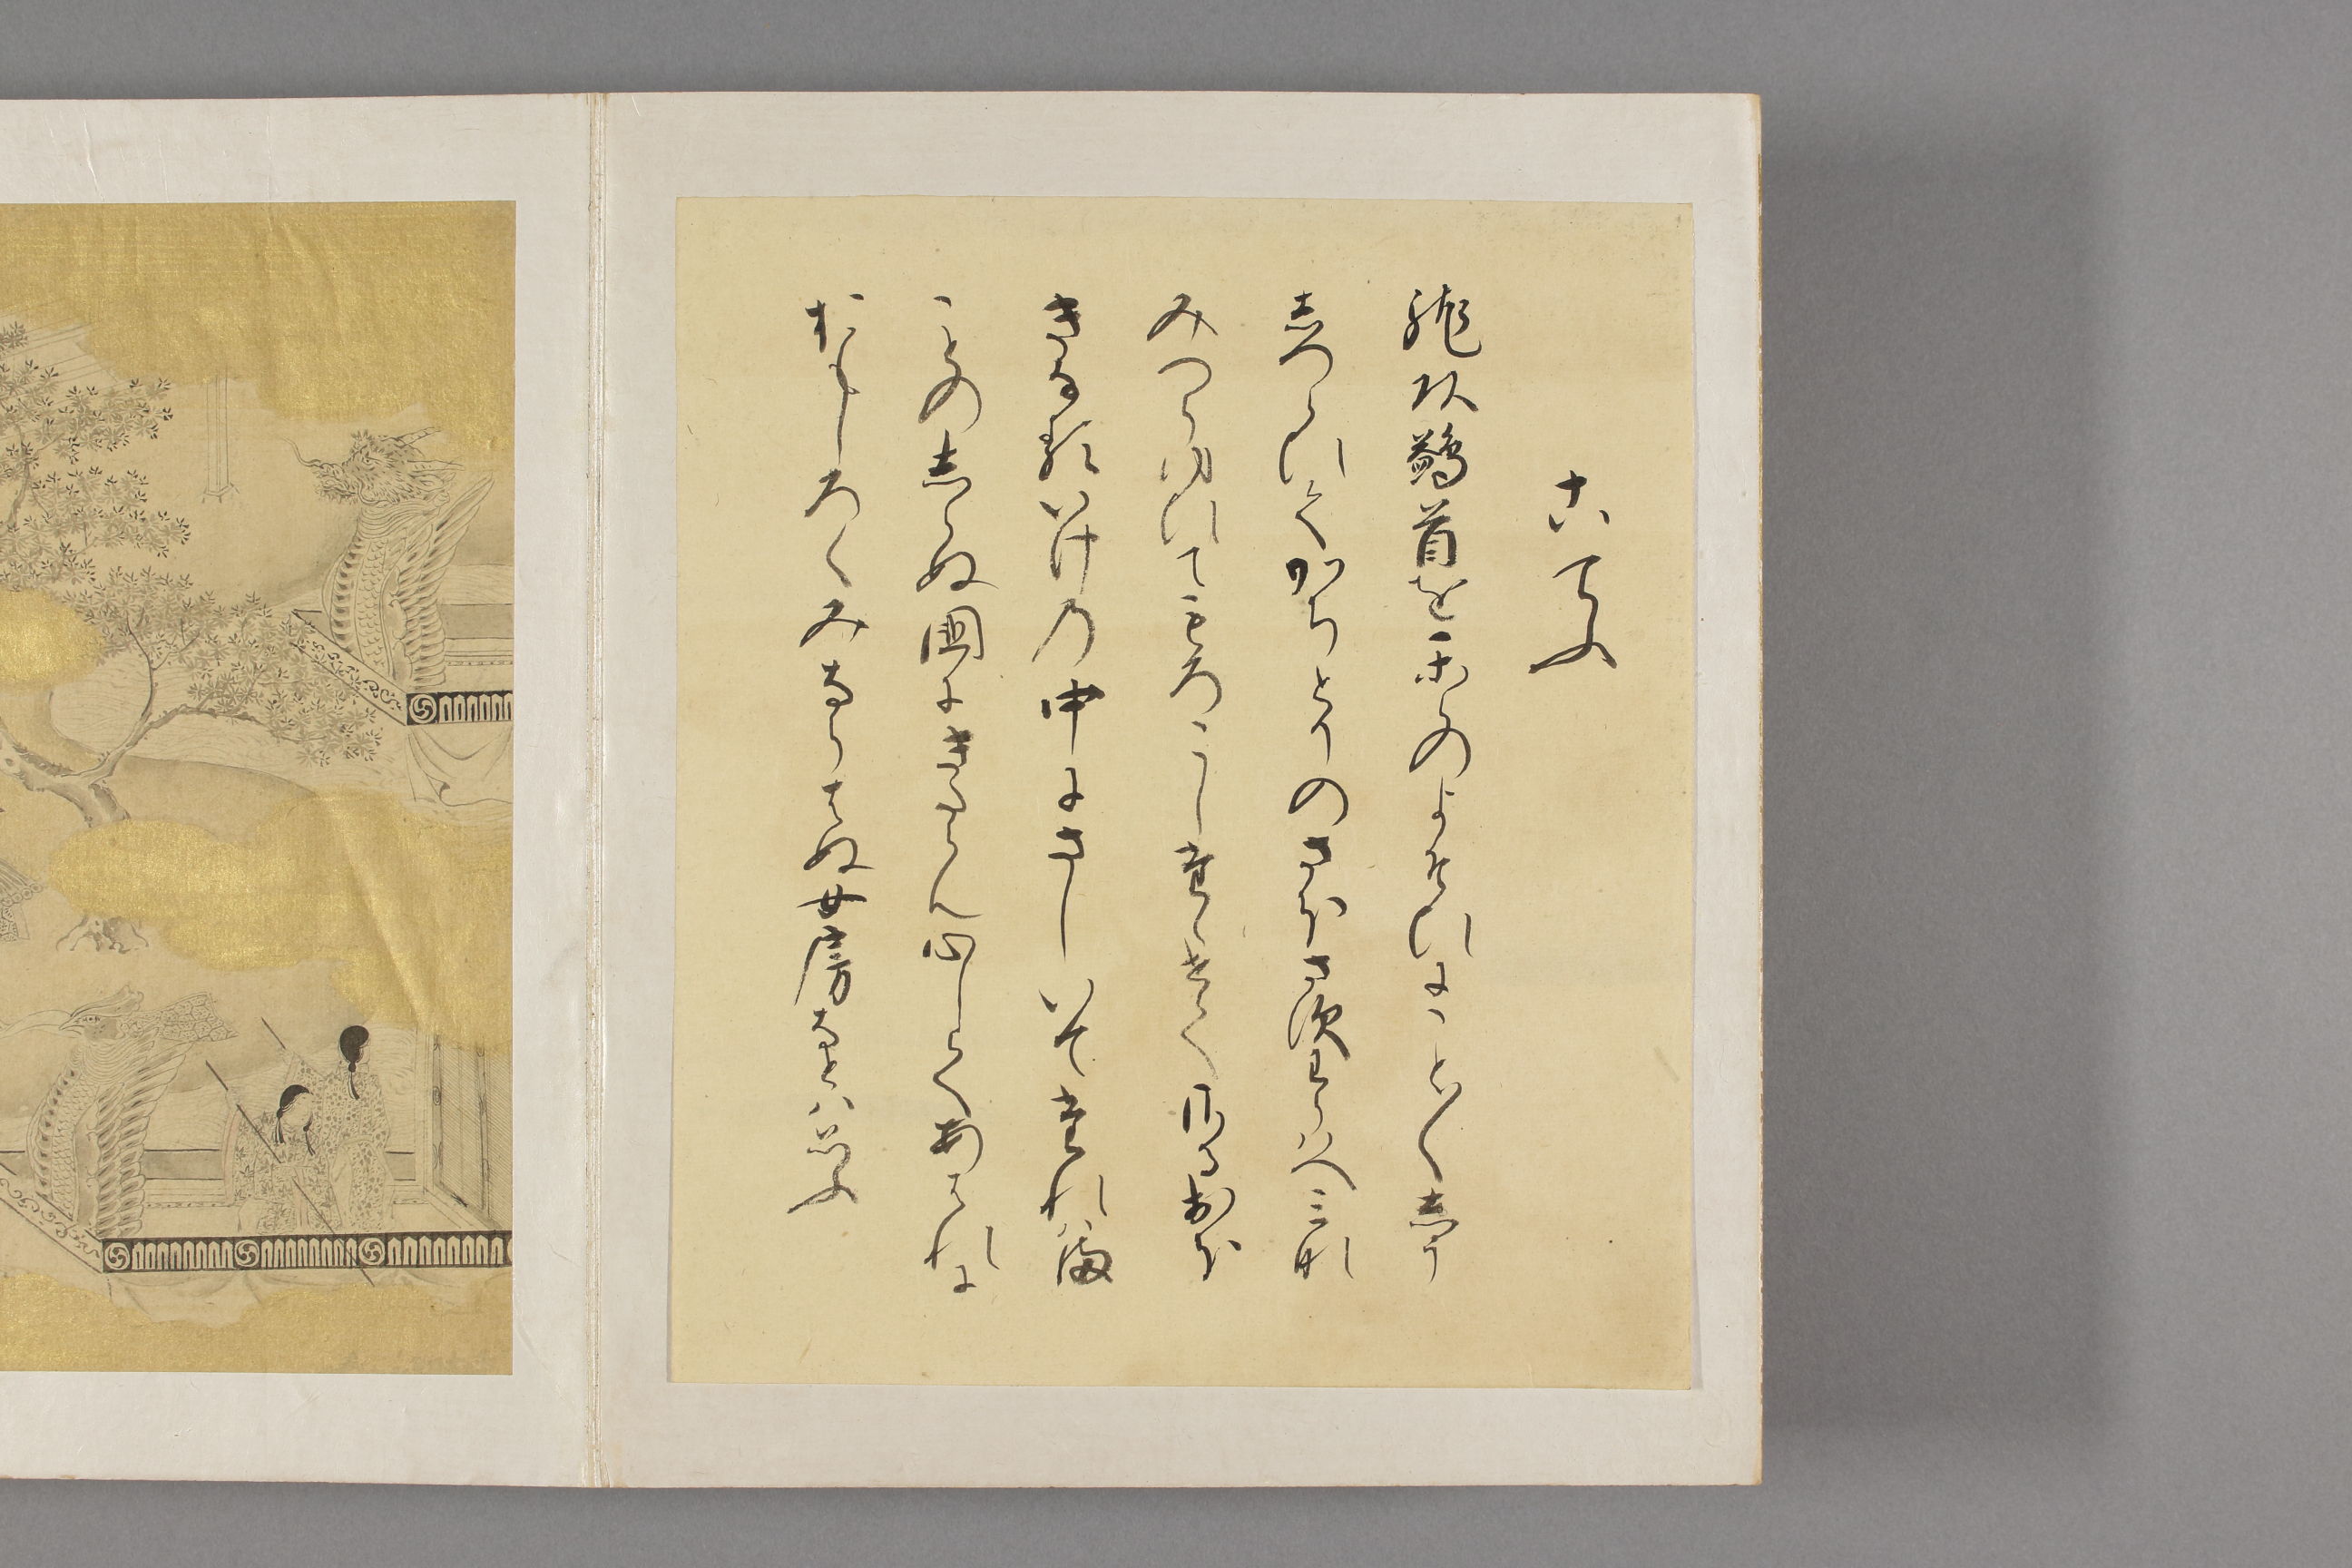 こてふ
龍頭鷁首をからのよそひにことくしう
しつらひてかちとりのさほさすわらはへみな
みつらゆひてもろこしたゝせてさるおほ
きなるいけの中にさしいてたれはま
ことのしらぬ国にきたらん心ちしてあはれに
おもしろくみならはぬ女房なとは思ふ